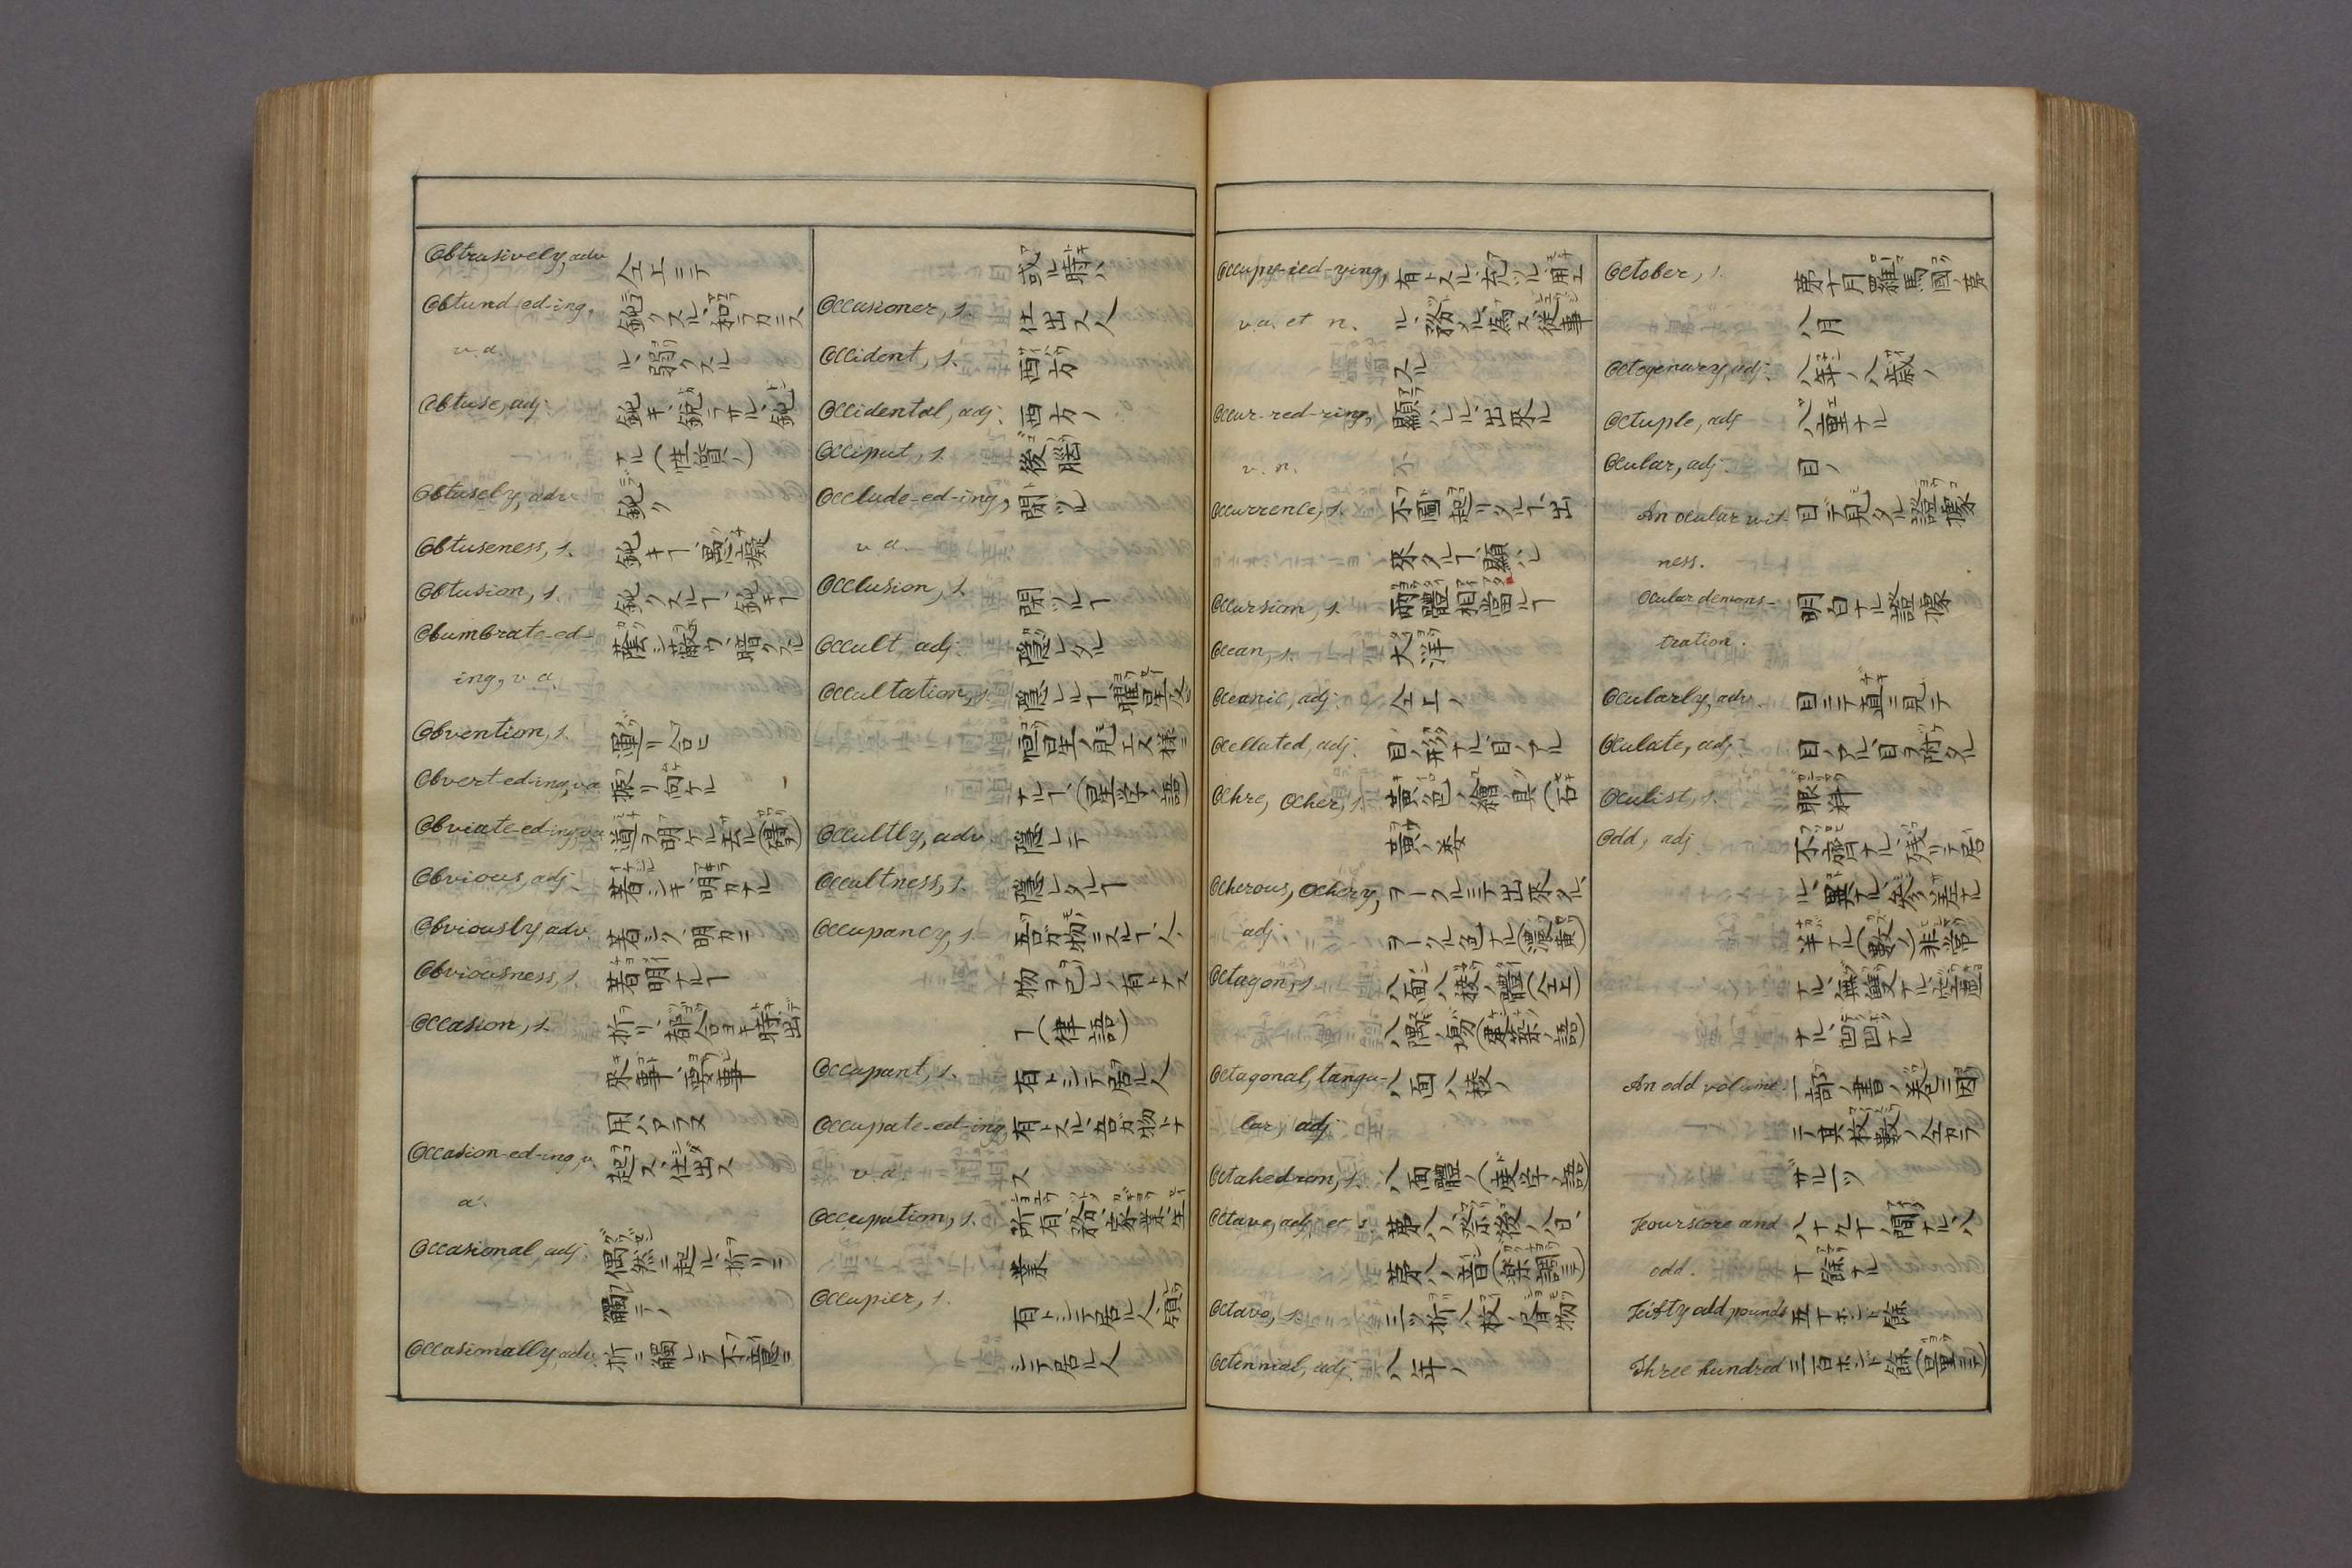 Obtrusively, adv. 仝上ニテ
Obtund-ed-ing, 鈍クスル、和ラカニス
v.a. ル、弱クスル
Obtuse, adj. 鈍キ、鋭ラサル、鈍
ナル(性質ノ)
Obtusely, adv. 鈍ク
Obtuseness, s. 鈍キヿ、愚癡
Obtusion, s. 鈍クスルヿ、鈍キヿ
Obumbrate-ed- 蔭シ蔽ウ、暗クスル
ing, v.a.
Obvention, s. 運リ合ヒ
Obvert-ed-ing, v.a. 振リ向ケル
Obviate-ed-ing, v.a. 道ヲ明ケル、去ル
Obvious, adj. 著シキ、明カナル
Obviously, adv. 著シク、明カニ
Obviousness, s. 著明ナルヿ
Occasion, s. 折リ、都合ヨキ時、出
来事、要事
用ハアラズ
Occasion-ed-ing, v. 起ス、仕出ス
a.
Occasional, adj. 偶然ニ起ル、折リニ
觸テノ
Occasionally, adv. 折ニ觸レテ、不意ニ
或ル時ハ
Occasioner, s. 仕出ス人
Occident, s. 西方
Occidental, adj. 西方ノ
Occiput, s. 後腦
Occlude-ed-ing, 閉ヅル
v.a.
Occlusion, s. 閉ヅルヿ
Occult, adj. 隱レタル
Occultation, s. 隱レルヿ、惑星及
恒星ノ見エヌ樣ニ
ナルヿ、(星学ノ語)
Occultly, adv. 隱レテ
Occultness, s. 隱レタルヿ
Occupancy, s. 吾ガ物ニスルヿ、人
物ヲ己レノ有トナス
ヿ(律語)
Occupant, s. 有トシテ居ル人
Occupate-ed-ing, 有トスル、吾ガ物トナ
v.a. ス
Occupation, s. 所有、務、家業、生
業
Occupier, s. 有トシテ居ル人、領
シテ居ル人
Occupy-ied-ying, 有トスル、充ツル、用ユ
v.a. et n. ル、務メル、為ス、從事
スル
Occur-red-ring, 顯ハレル、出来ル
v.n.
Occurrence, s. 不圖起リタルヿ、出
来タルヿ、顯レ
Occursion, s. 兩體相當ルヿ
Ocean, s. 大洋
Oceanic, adj. 仝上ノ
Ocellated, adj. 目ノ形ナル、目ノアル
Ochre, Ocher, s. 黄色ノ繪ノ具(石
黄ノ类
Ocherous, Ochery, ヲークルニテ出来タル、
adj. ヲークル色ナル(濃黄)
Octagon, s. 八面八稜ノ體(仝上)
八隅ノ場(建築ノ語)
Octagonal, tangu- 八面八稜ノ
lar, adj.
Octahedron, s. 八面體ノ(度学ノ語)
Octave, adj. et s. 第八ノ、祭後ノ八日、
第八ノ音(楽調ニテ)
Octavo, s. 三ツ折八枚ノ眉物
Octennial, adj. 八年ノ
October, s. 第十月羅馬國ノ第
八月
Octogenary, adj. 八年ノ、八歳ノ
Octuple, adj. 八重ナル
Ocular, adj. 目ノ
An ocular wit- 目テ見タル證據
ness.
Ocular demons- 明白ナル證據
tration.
Ocularly, adv. 目ニテ直ニ見テ
Oculate, adj. 目ノアル、目ヲ附タル
Oculist, s. 眼科
Odd, adj. 不齊ナル、残リテ居
ル、異ナル、參差ナル
半ナル(數ノ)非常
ナル、無雙ナル、空虛
ナル、凹凸ナル
An odd volume. 一部ノ書ノ卷ニ因
テ其枚數ノ仝カラ
サル一ツ
Fourscore and 八十九十ノ間ナル、八
odd. 十餘ナル
Fifty odd pounds 五十ホンド餘
Three hundred 三百ホンド餘(量ニテ)